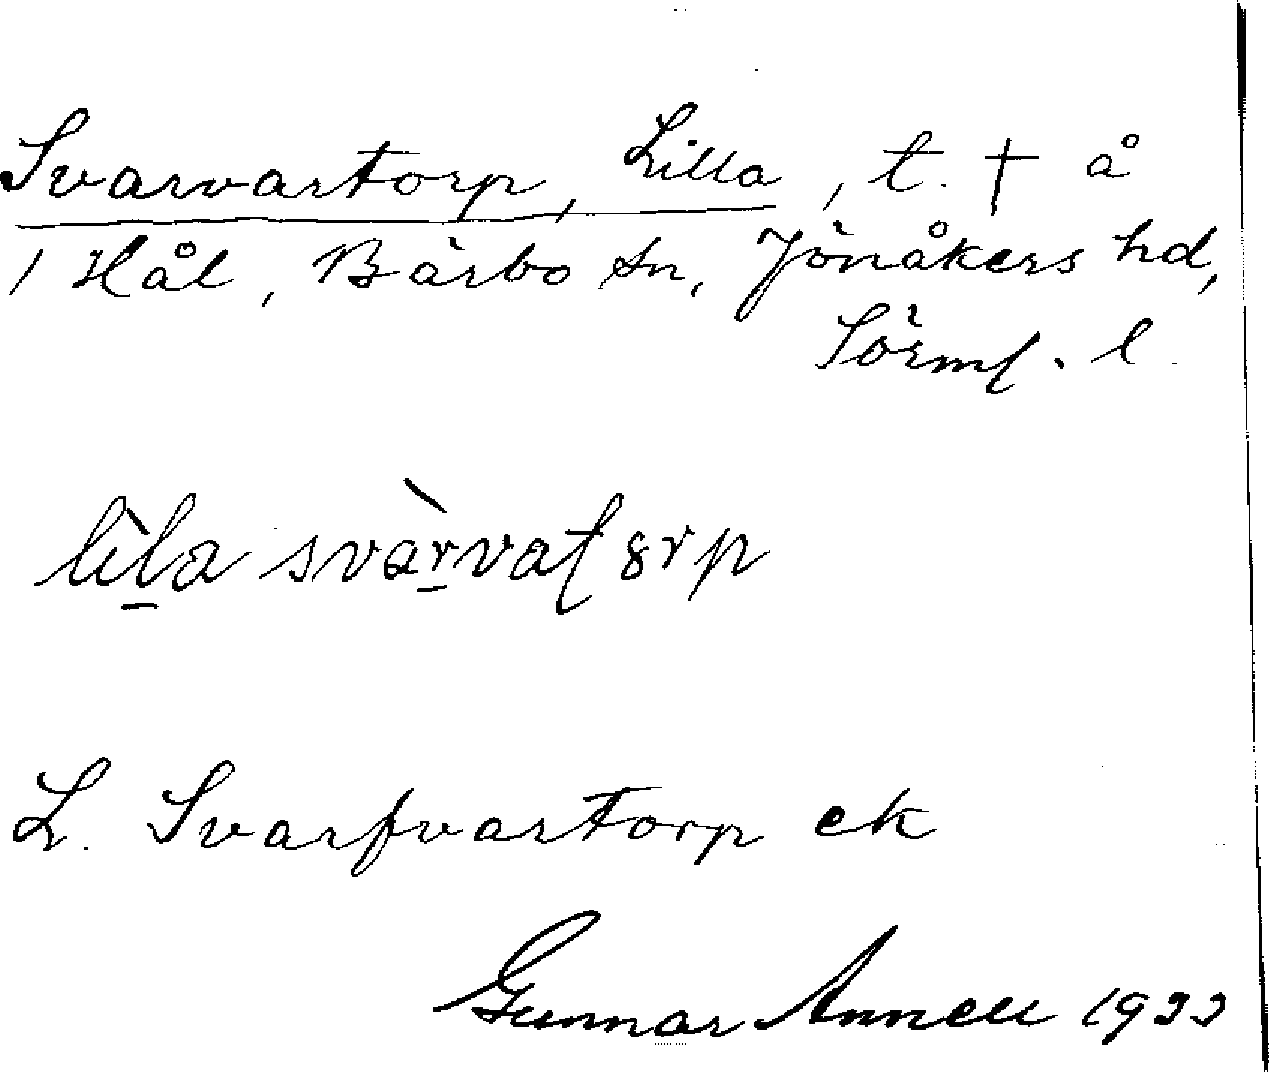 Svarvartorp, Lilla, t. † å
1 Hål, Bärbo sn, Jönåkers hd,
Sörml. l.
L. Svarfvartorp ek
Gunnar Annell 1933